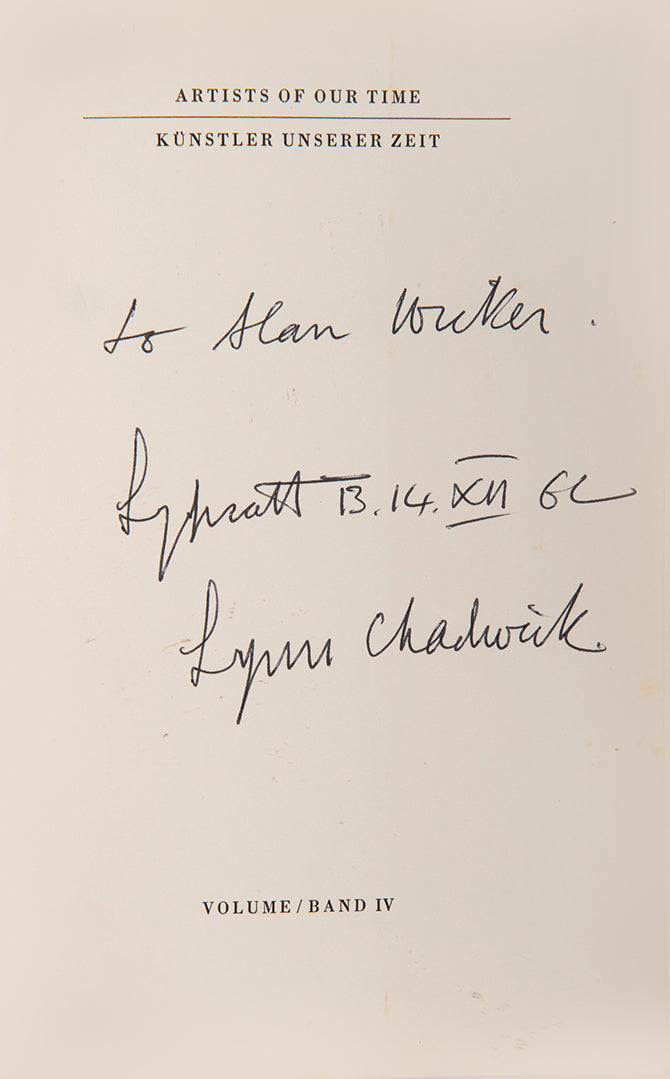 ARTISTS OF OUR TIME
KÜNSTLER UNSERER ZEIT
to Alan Wicker.
Lypiatt 13.14.XII 62
Lynn Chadwick.
VOLUME/BAND IV